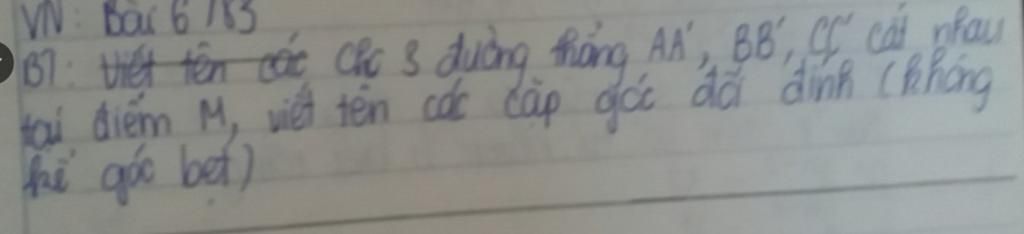 VN: Bài 6 / 83
BT: viết tên các Cho 3 đường thẳng AA', BB', CC' cắt nhau
tại điểm M, viết tên các cặp góc đối đỉnh (không
kể góc bẹt)